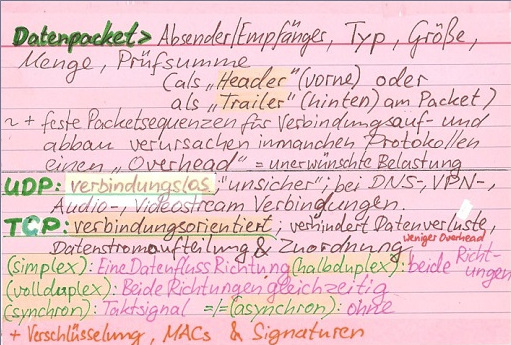 Datenpacket> Absender/Empfänger, Typ, Größe,
Menge, Prüfsumme
(als „Header" (vorne) oder
als „Trailer" (hinten) am Packet)
~ + feste Packetsequenzen für Verbindungsauf- und
abbau verursachen in manchen Protokollen
einen „Overhead" = unerwünschte Belastung
UDP: verbindungslos "unsicher"; bei DNS-, VPN-,
Audio-, Videostream Verbindungen.
TCP: verbindungsorientiert; verhindert Datenverluste,
Datenstromaufteilung & Zuordnung weniger Overhead
(simplex): Eine Datenfluss Richtung (halbduplex): beide Richt-
(vollduplex): Beide Richtungen gleichzeitig ungen
(synchron): Taktsignal =/= (asynchron): ohne
+ Verschlüsselung, MACs & Signaturen